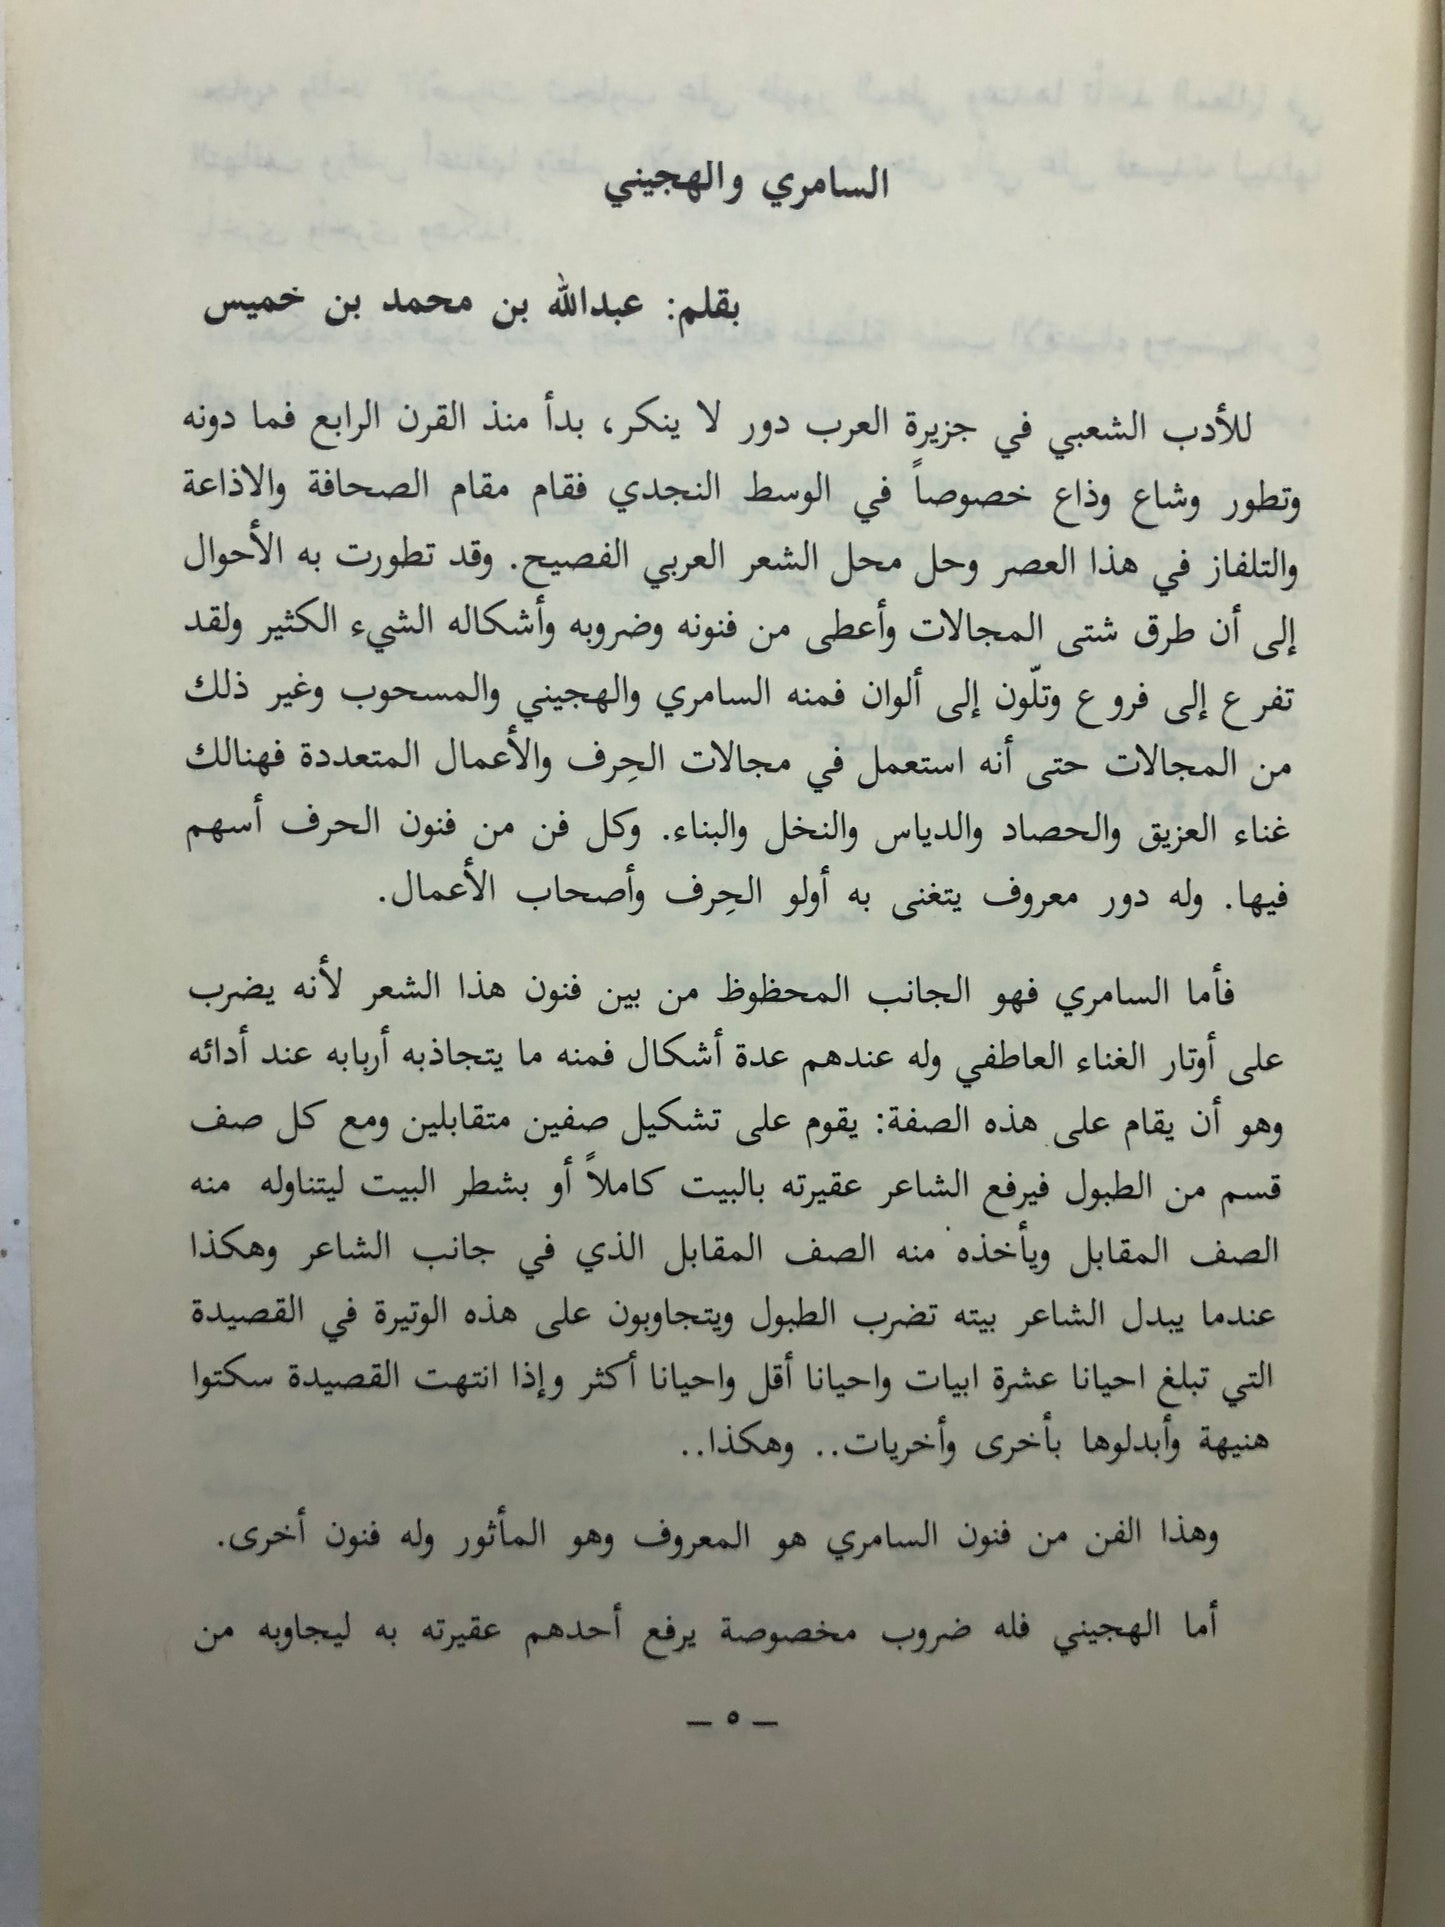 السامري والهجيني
بقلم: عبدالله بن محمد بن خميس
للأدب الشعبي في جزيرة العرب دور لا ينكر، بدأ منذ القرن الرابع فما دونه
وتطور وشاع وذاع خصوصاً في الوسط النجدي فقام مقام الصحافة والاذاعة
والتلفاز في هذا العصر وحل محل الشعر العربي الفصيح. وقد تطورت به الأحوال
إلى أن طرق شتى المجالات وأعطى من فنونه وضروبه وأشكاله الشيء الكثير ولقد
تفرع إلى فروع وتلّون إلى ألوان فمنه السامري والهجيني والمسحوب وغير ذلك
من المجالات حتى أنه استعمل في مجالات الحِرف والأعمال المتعددة فهنالك
غناء العزيق والحصاد والدياس والنخل والبناء. وكل فن من فنون الحرف أسهم
فيها. وله دور معروف يتغنى به أولو الحِرف وأصحاب الأعمال.
فأما السامري فهو الجانب المحظوظ من بين فنون هذا الشعر لأنه يضرب
على أوتار الغناء العاطفي وله عندهم عدة أشكال فمنه ما يتجاذبه أربابه عند أدائه
وهو أن يقام على هذه الصفة: يقوم على تشكيل صفين متقابلين ومع كل صف
قسم من الطبول فيرفع الشاعر عقيرته بالبيت كاملاً أو بشطر البيت ليتناوله منه
الصف المقابل ويأخذه منه الصف المقابل الذي في جانب الشاعر وهكذا
عندما يبدل الشاعر بيته تضرب الطبول ويتجاوبون على هذه الوتيرة في القصيدة
التي تبلغ احيانا عشرة ابيات واحيانا أقل واحيانا أكثر وإذا انتهت القصيدة سكتوا
هنيهة وأبدلوها بأخرى وأخريات.. وهكذا..
وهذا الفن من فنون السامري هو المعروف وهو المأثور وله فنون أخرى.
أما الهجيني فله ضروب مخصوصة يرفع أحدهم عقيرته به ليجاوبه من
— ٥ —